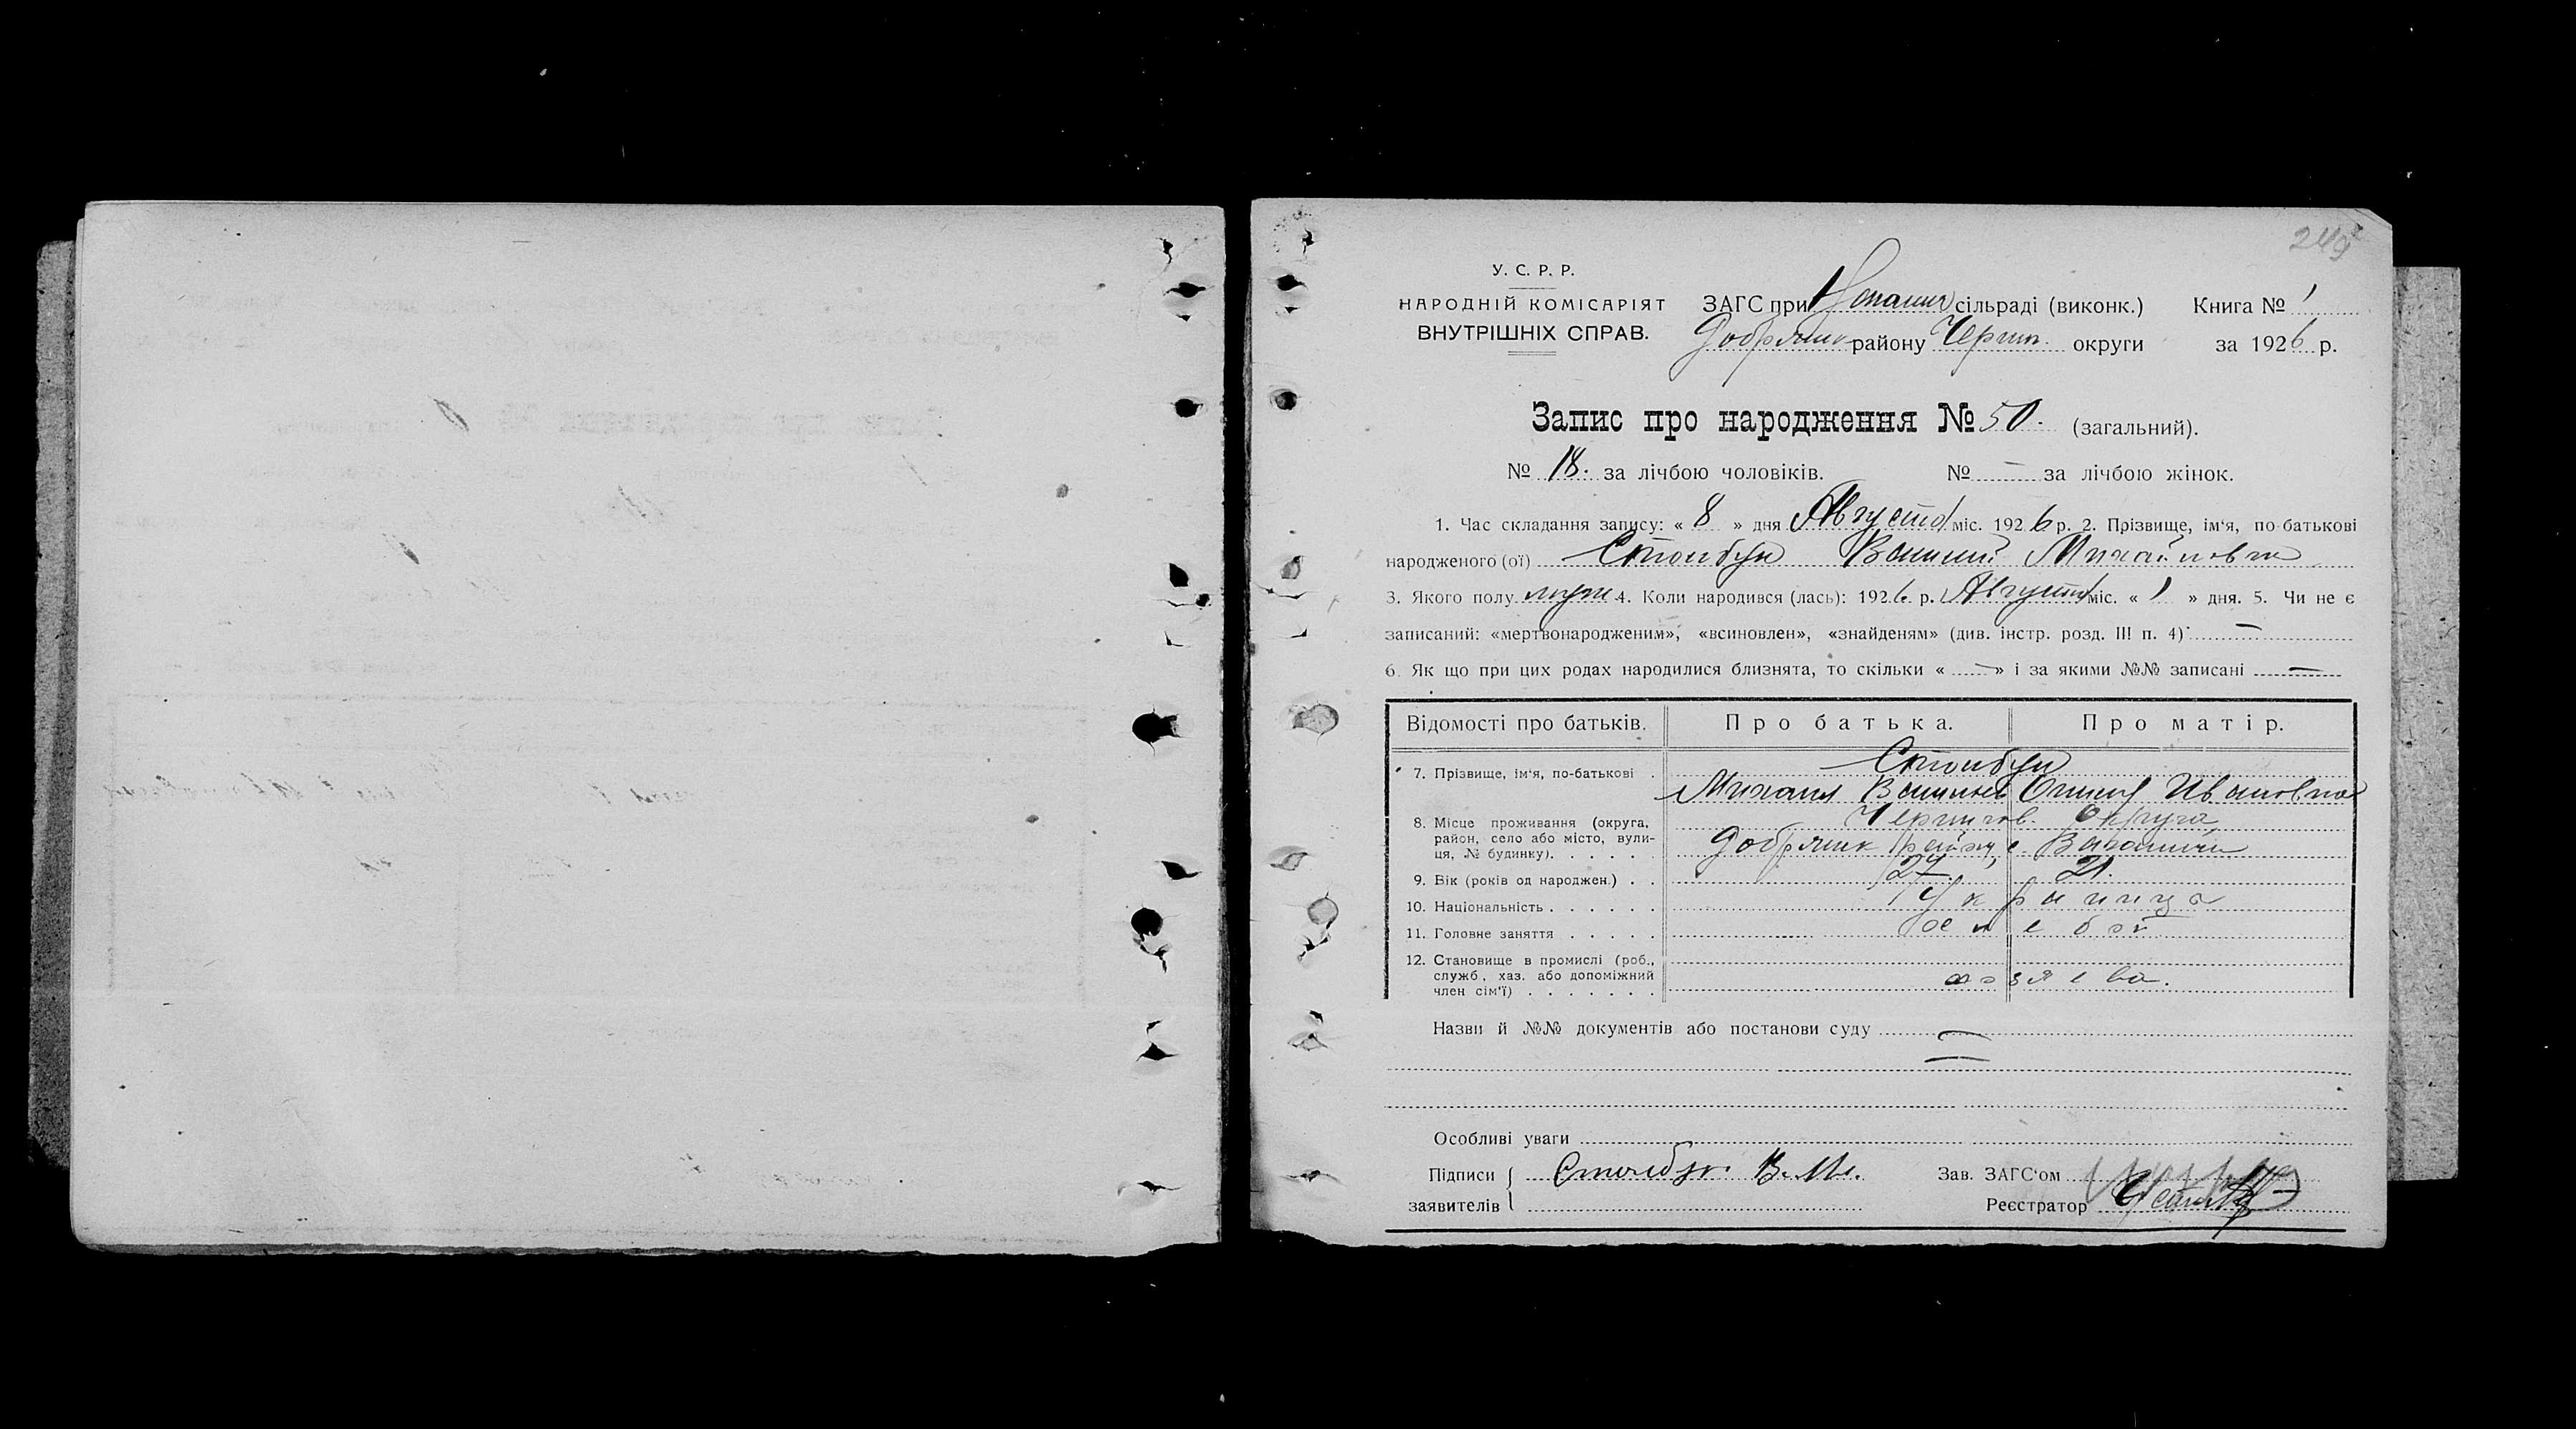 249
У. С. Р. Р.
НАРОДНІЙ КОМІСАРІЯТ
ВНУТРІШНІХ СПРАВ.
ЗАГС при сільраді (виконк.) Книга № 1
Добрянк району Черниг. округи за 1926 р.
Запис про народження № 50. (загальний).
№ 18. за лічбою чоловіків. № — за лічбою жінок.
1. Час складання запису: « 8 » дня Августа міс. 1926 р. 2. Прізвище, ім'я, по-батькові
народженого (ої) Столбун Михайлович
3. Якого полу муж 4. Коли народився (лась): 1926 р. Августа міс. « 1 » дня. 5. Чи не є
записаний: «мертвонародженим», «всиновлен», «знайденям» (див. інстр. розд. III п. 4) —
6. Як що при цих родах народилися близнята, то скільки « — » і за якими №№ записані —
Відомості про батьків. Про батька. Про матір.
7. Прізвище, ім'я, по-батькові . Столбун
Михаил Ивановна
8. Місце проживання (округа, Чернигов. округа
район, село або місто, вули- Добрянк район с.
ця, № будинку). . . . . .
9. Вік (років од народжен.) . . 27. 21.
10. Національність . . . . . . Украинца
11. Головне заняття . . . . . хлебоп
12. Становище в промислі (роб.,
служб., хаз. або допоміжний хозяева.
член сім'ї) . . . . . . .
Назви й №№ документів або постанови суду —
Особливі уваги
Підписи Столбун В. М. Зав. ЗАГС'ом
заявителів Реєстратор